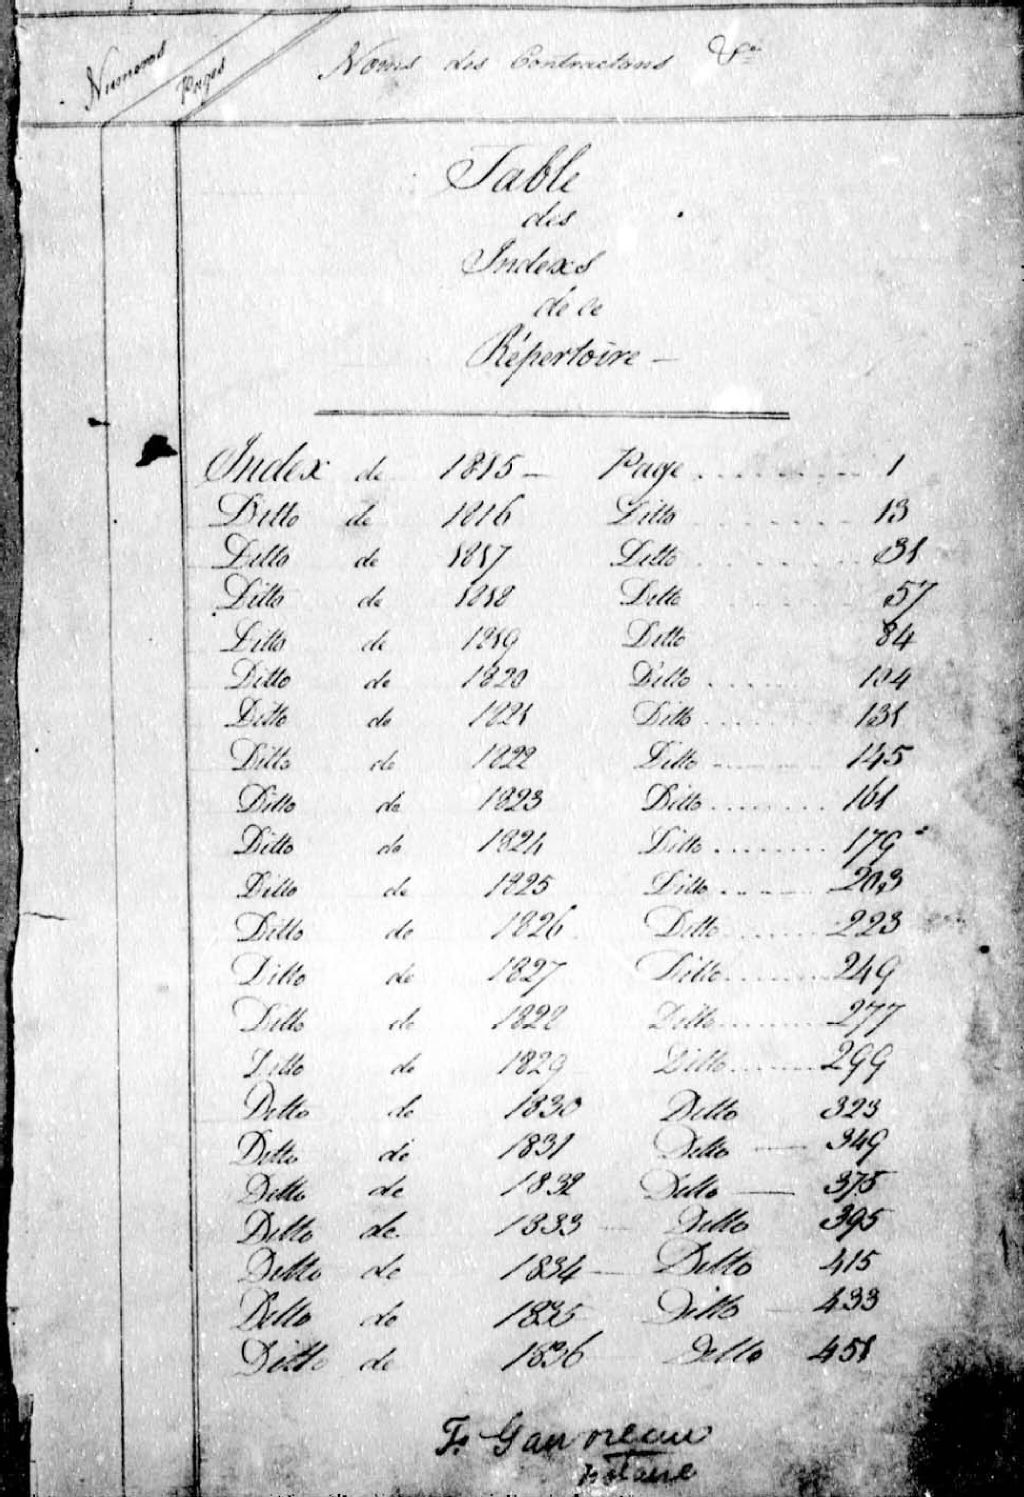 Numeros Pages Noms des Contractans &ca
Table
des
Indexs
de ce
Répertoire —
Index de 1815 — Page . . . . . . . . . 1
Ditto de 1816 Ditto . . . . . . . . 13
Ditto de 1817 Ditto . . . . . . . . 31
Ditto de 1818 Ditto 57
Ditto de 1819 Ditto 84
Ditto de 1820 Ditto . . . . . 104
Ditto de 1821 Ditto . . . . . . 131
Ditto de 1822 Ditto . . . . . . . . 145
Ditto de 1823 Ditto . . . . . . . . 161
Ditto de 1824 Ditto . . . . . . . . 179
Ditto de 1825 Ditto . . . . . . 203
Ditto de 1826 Ditto . . . . . . . 223
Ditto de 1827 Ditto . . . . . . . . 249
Ditto de 1828 Ditto . . . . . . . . 277
Ditto de 1829 Ditto . . . . . . . 299
Ditto de 1830 Ditto 323
Ditto de 1831 Ditto — 349
Ditto de 1832 Ditto — 375
Ditto de 1833 — Ditto 395
Ditto de 1834 — Ditto 415
Ditto de 1835 Ditto — 433
Ditto de 1836 Ditto 451
Fs Gauvreau
notaire